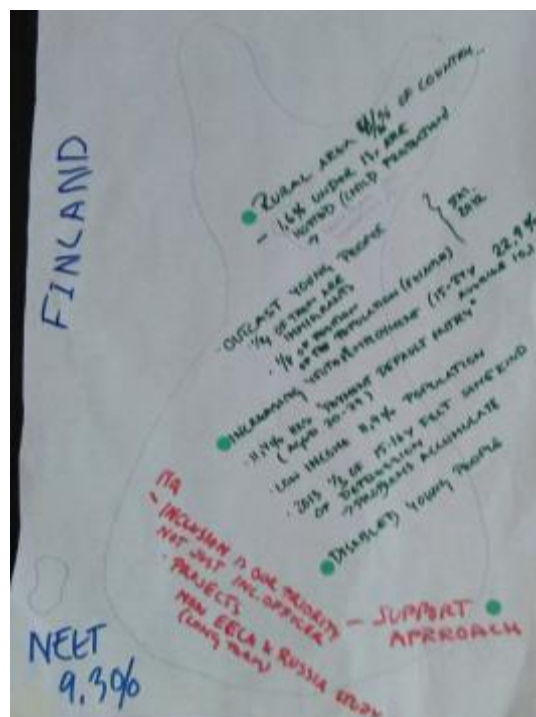 FINLAND
RURAL AREA OF COUNTRY...
- 1,6% UNDER 18, ARE
HOSTED (CHILD PROTECTION
?
· OUTCAST YOUNG PEOPLE
1/4 OF THEM ARE
IMMIGRANTS
OF THE POPULATION
2012
INCREASING YOUTH UNEMPLOYMENT (15-24y 22,9%
AVERAGE
· 11,4% HAS "PAYMENT DEFAULT ENTRY"
(AGED 20-29)
· LOW INCOME 11,9% POPULATION
· 2013 1/3 OF 15-16y FELT SOMEKIND
OF DEPRESSION
→ PROBLEMS ACCUMULATE
DISABLED YOUNG PEOPLE
- INCLUSION IS OUR PRIORITY
NOT JUST INC. OFFICER
· PROJECTS
NON EECA & RUSSIA STUDY
(LONG TERM)
- SUPPORT
APRROACH
NEET
9.3%